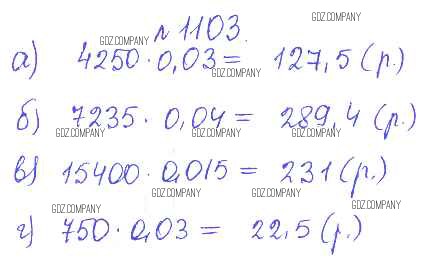 № 1103.
а) 4250 · 0,03 = 127,5 (р.)
б) 7235 · 0,04 = 289,4 (р.)
в) 15400 · 0,015 = 231 (р.)
г) 750 · 0,03 = 22,5 (р.)
GDZ.COMPANY
GDZ.COMPANY
GDZ.COMPANY
GDZ.COMPANY
GDZ.COMPANY
GDZ.COMPANY
GDZ.COMPANY
GDZ.COMPANY
GDZ.COMPANY
GDZ.COMPANY
GDZ.COMPANY